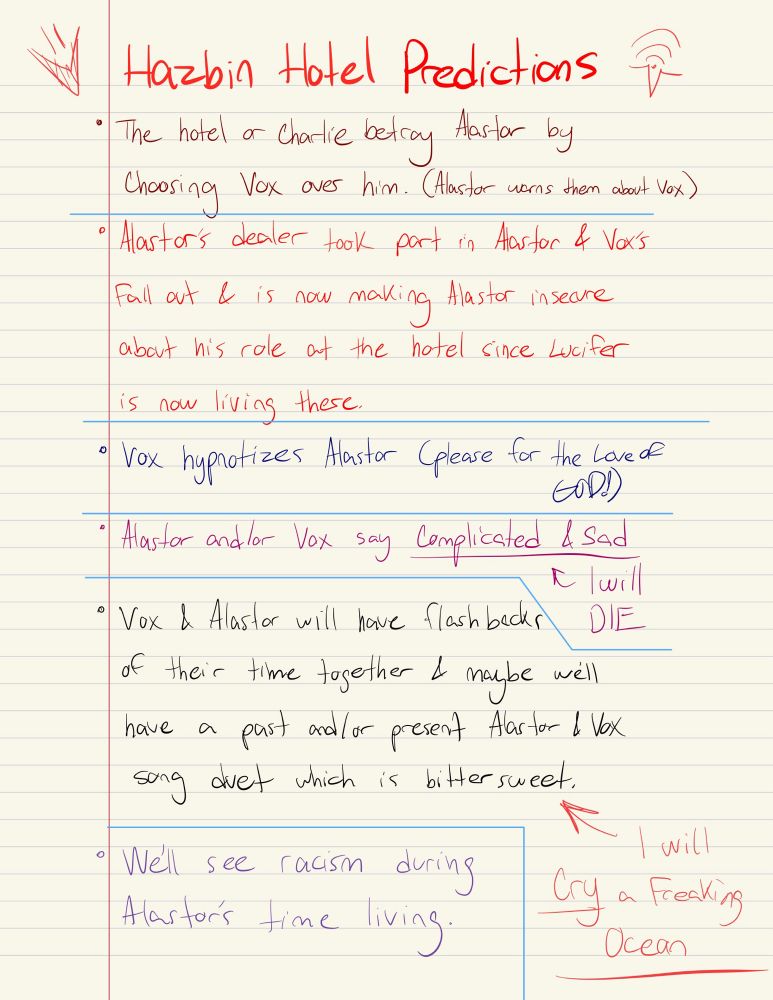 Hazbin Hotel Predictions
• The hotel or Charlie betray Alastor by
Choosing Vox over him. (Alastor warns them about Vox)
• Alastor's dealer took part in Alastor & Vox's
Fall out & is now making Alastor insecure
about his role at the hotel since Lucifer
is now living there.
• Vox hypnotizes Alastor (please for the Love of
GOD!)
• Alastor and/or Vox say Complicated & Sad
I will
DIE
• Vox & Alastor will have flashbacks
of their time together & maybe we'll
have a past and/or present Alastor & Vox
song duet which is bittersweet.
I will
Cry a Freaking
Ocean
• We'll see racism during
Alastor's time living.